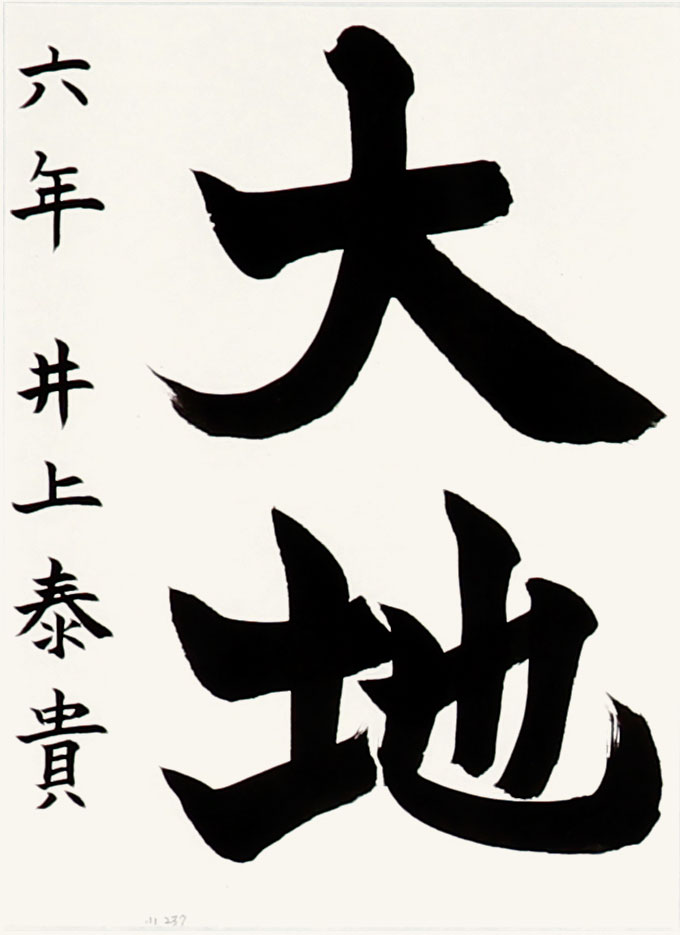 大地
六年 井上泰貴
小 237